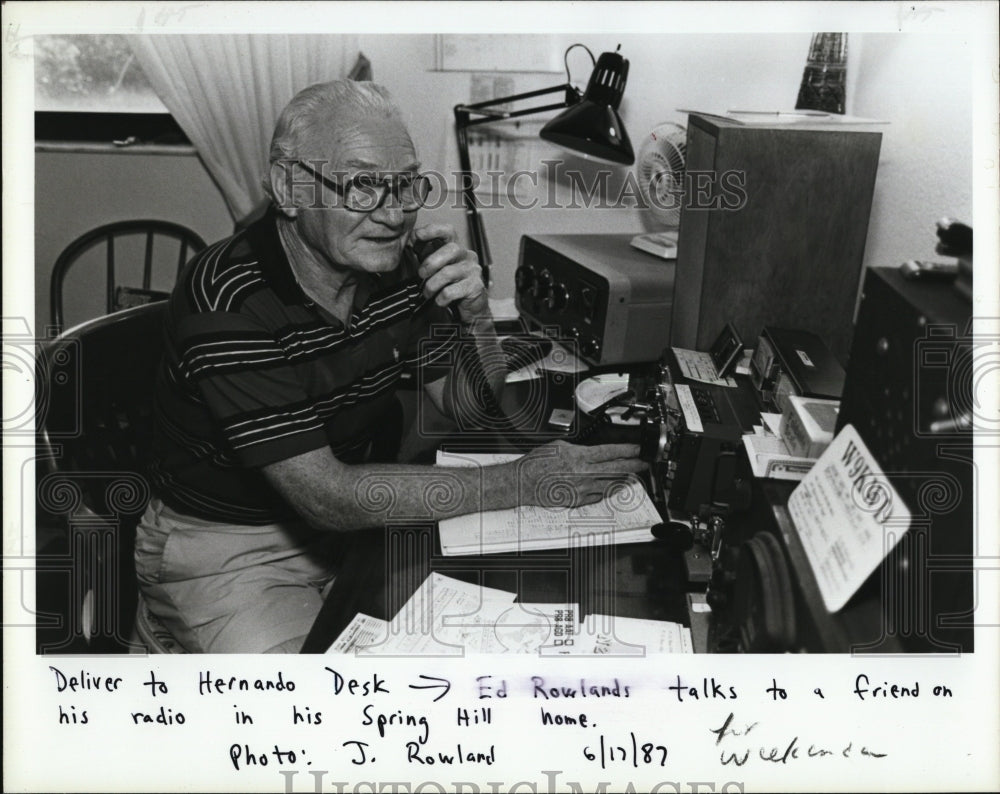 HISTORIC IMAGES
W9K
Deliver to Hernando Desk → Ed Rowlands talks to a friend on
his radio in his Spring Hill home.
Photo: J. Rowland 6/17/87 for
Weekender
HISTORIC IMAGES